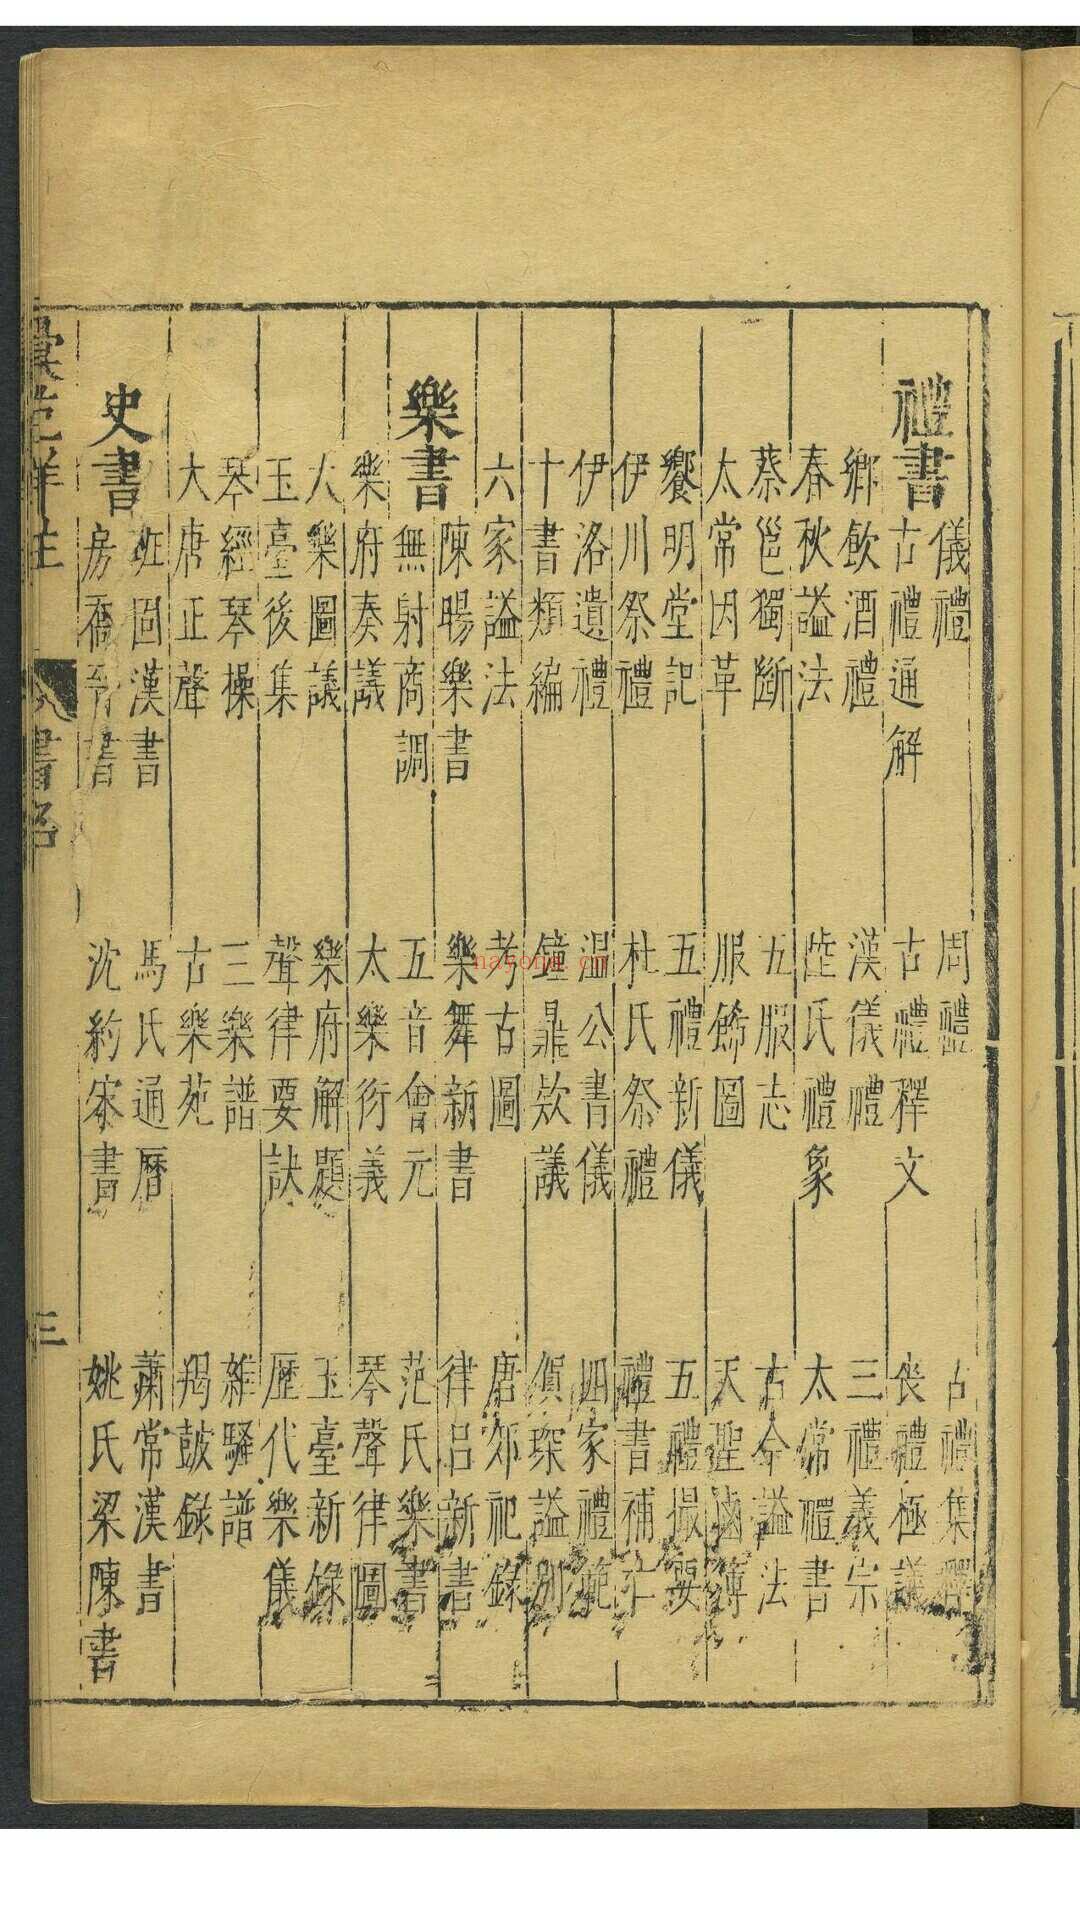 禮書
儀禮　周禮　古禮集釋
古禮通解　古禮釋文　喪禮極議
鄉飲酒禮　漢儀禮　三禮義宗
春秋謚法　陸氏禮象　太常禮書
蔡邕獨斷　五服志　古今謚法
太常因革　服飾圖　天聖鹵簿
饗明堂記　五禮新儀　五禮撮要
伊川祭禮　杜氏祭禮　禮書補亡
伊洛遺禮　温公書儀　四家禮範
十書類編　鐘鼎欵議　賀琛謚別
六家謚法　考古圖　唐郊祀錄
樂書
陳暘樂書　樂舞新書　律呂新書
無射商調　五音會元　范氏樂書
樂府奏議　太樂衍義　琴聲律圖
大樂圖議　樂府解題　玉臺新錄
玉臺後集　聲律要訣　歷代樂儀
琴經琴操　三樂譜　離騷譜
大唐正聲　古樂苑　羯鼓錄
史書
班固漢書　馬氏通曆　蕭常漢書
房喬晉書　沈約宋書　姚氏梁陳書
彙苑詳註　書名　三
nayona.cn